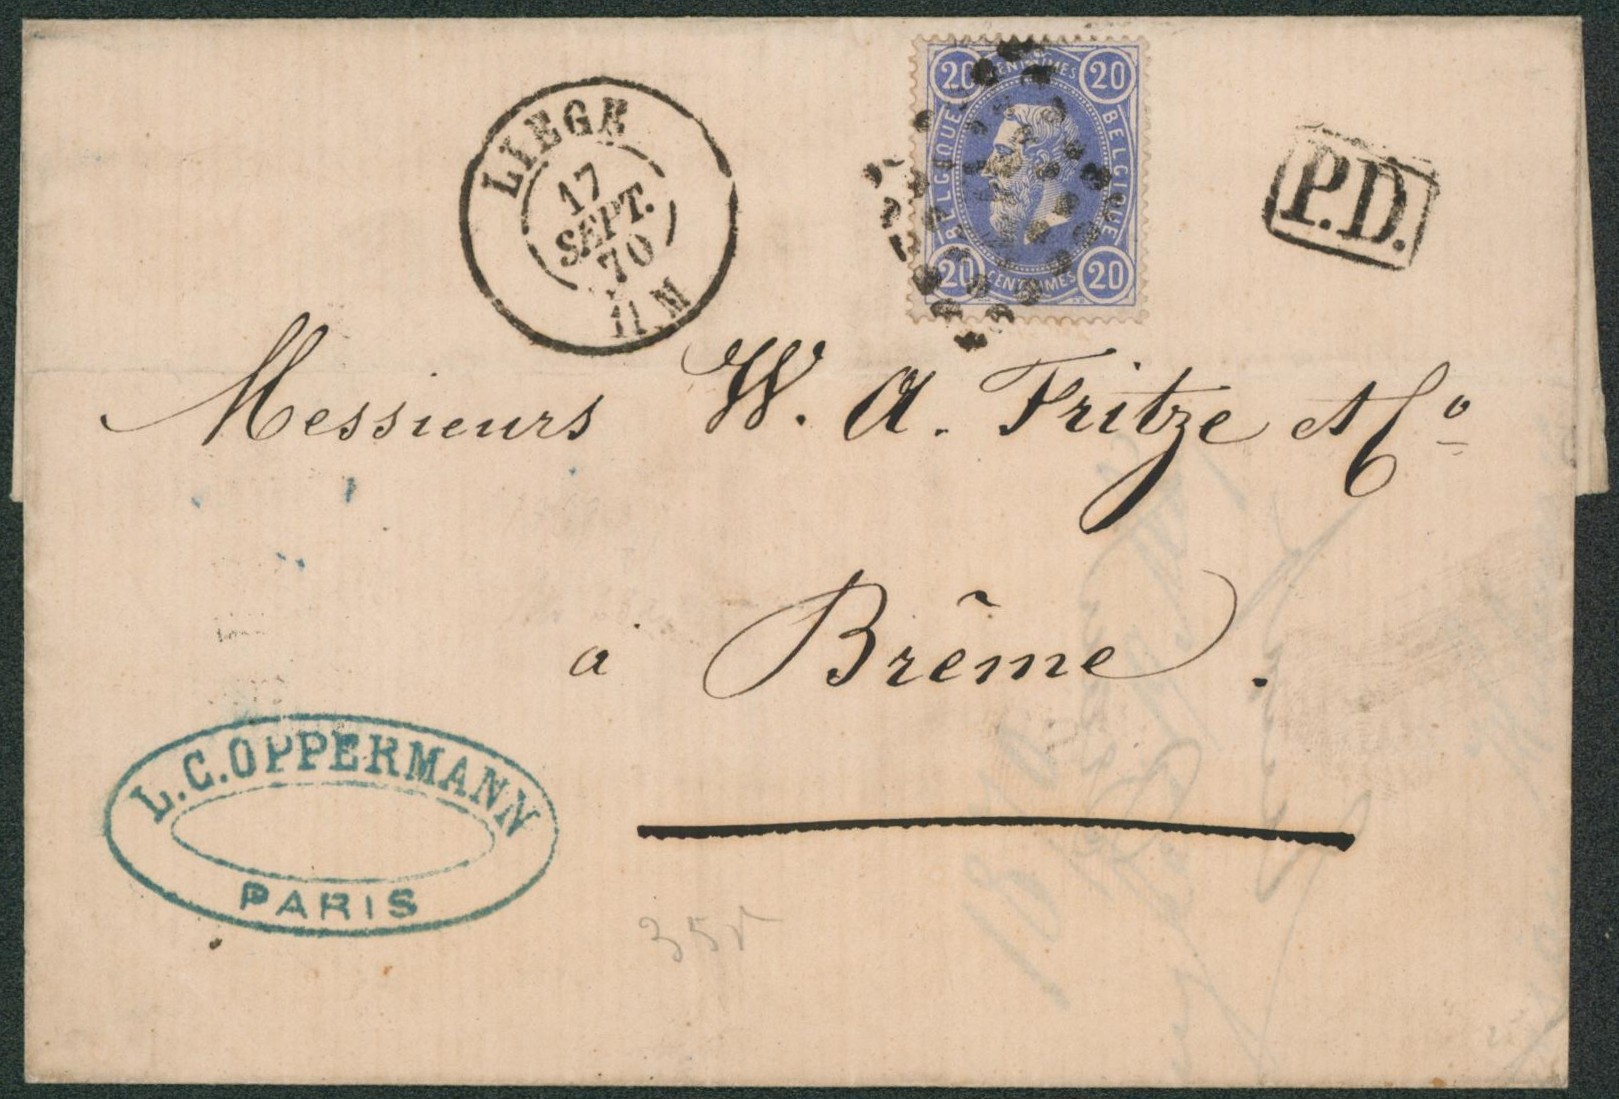 LIEGE
17
SEPT.
70
11 M
20 CENTIMES 20
BELGIQUE BELGIQUE
20 CENTIMES 20
P.D.
Messieurs W. A. Fritze & Co
à Brême.
L. C. OPPERMANN
PARIS